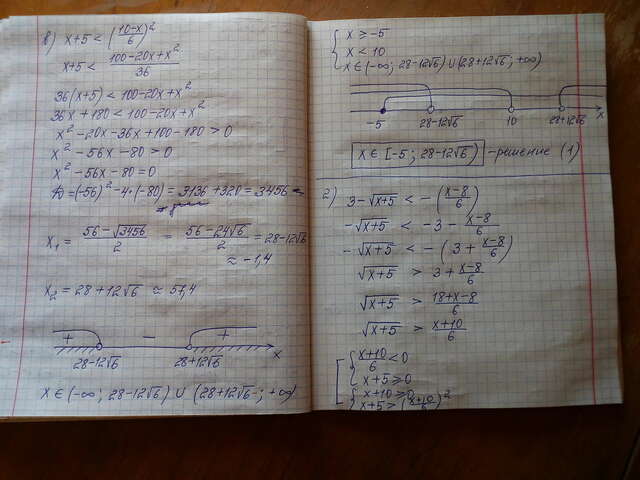 в) x+5 < ((10-x)/6)²
x+5 < (100-20x+x²)/36
36(x+5) < 100-20x+x²
36x+180 < 100-20x+x²
x²-20x-36x+100-180 > 0
x²-56x-80 > 0
x²-56x-80=0
D=(-56)²-4·(-80)=3136+320=3456
x₁ = (56-√3456)/2 = (56-24√6)/2 = 28-12√6
≈ -1,4
x₂ = 28+12√6 ≈ 57,4
+ - +
28-12√6 28+12√6 x
x ∈ (-∞; 28-12√6) ∪ (28+12√6; +∞)
{ x ≥ -5
x < 10
x ∈ (-∞; 28-12√6) ∪ (28+12√6; +∞)
-5 28-12√6 10 28+12√6 x
x ∈ [-5; 28-12√6) - решение (1)
2) 3-√(x+5) < -((x-8)/6)
-√(x+5) < -3 - (x-8)/6
-√(x+5) < -(3 + (x-8)/6)
√(x+5) > 3 + (x-8)/6
√(x+5) > (18+x-8)/6
√(x+5) > (x+10)/6
[ { (x+10)/6 < 0
x+5 ≥ 0
{ x+10 ≥ 0
x+5 > ((x+10)/6)²